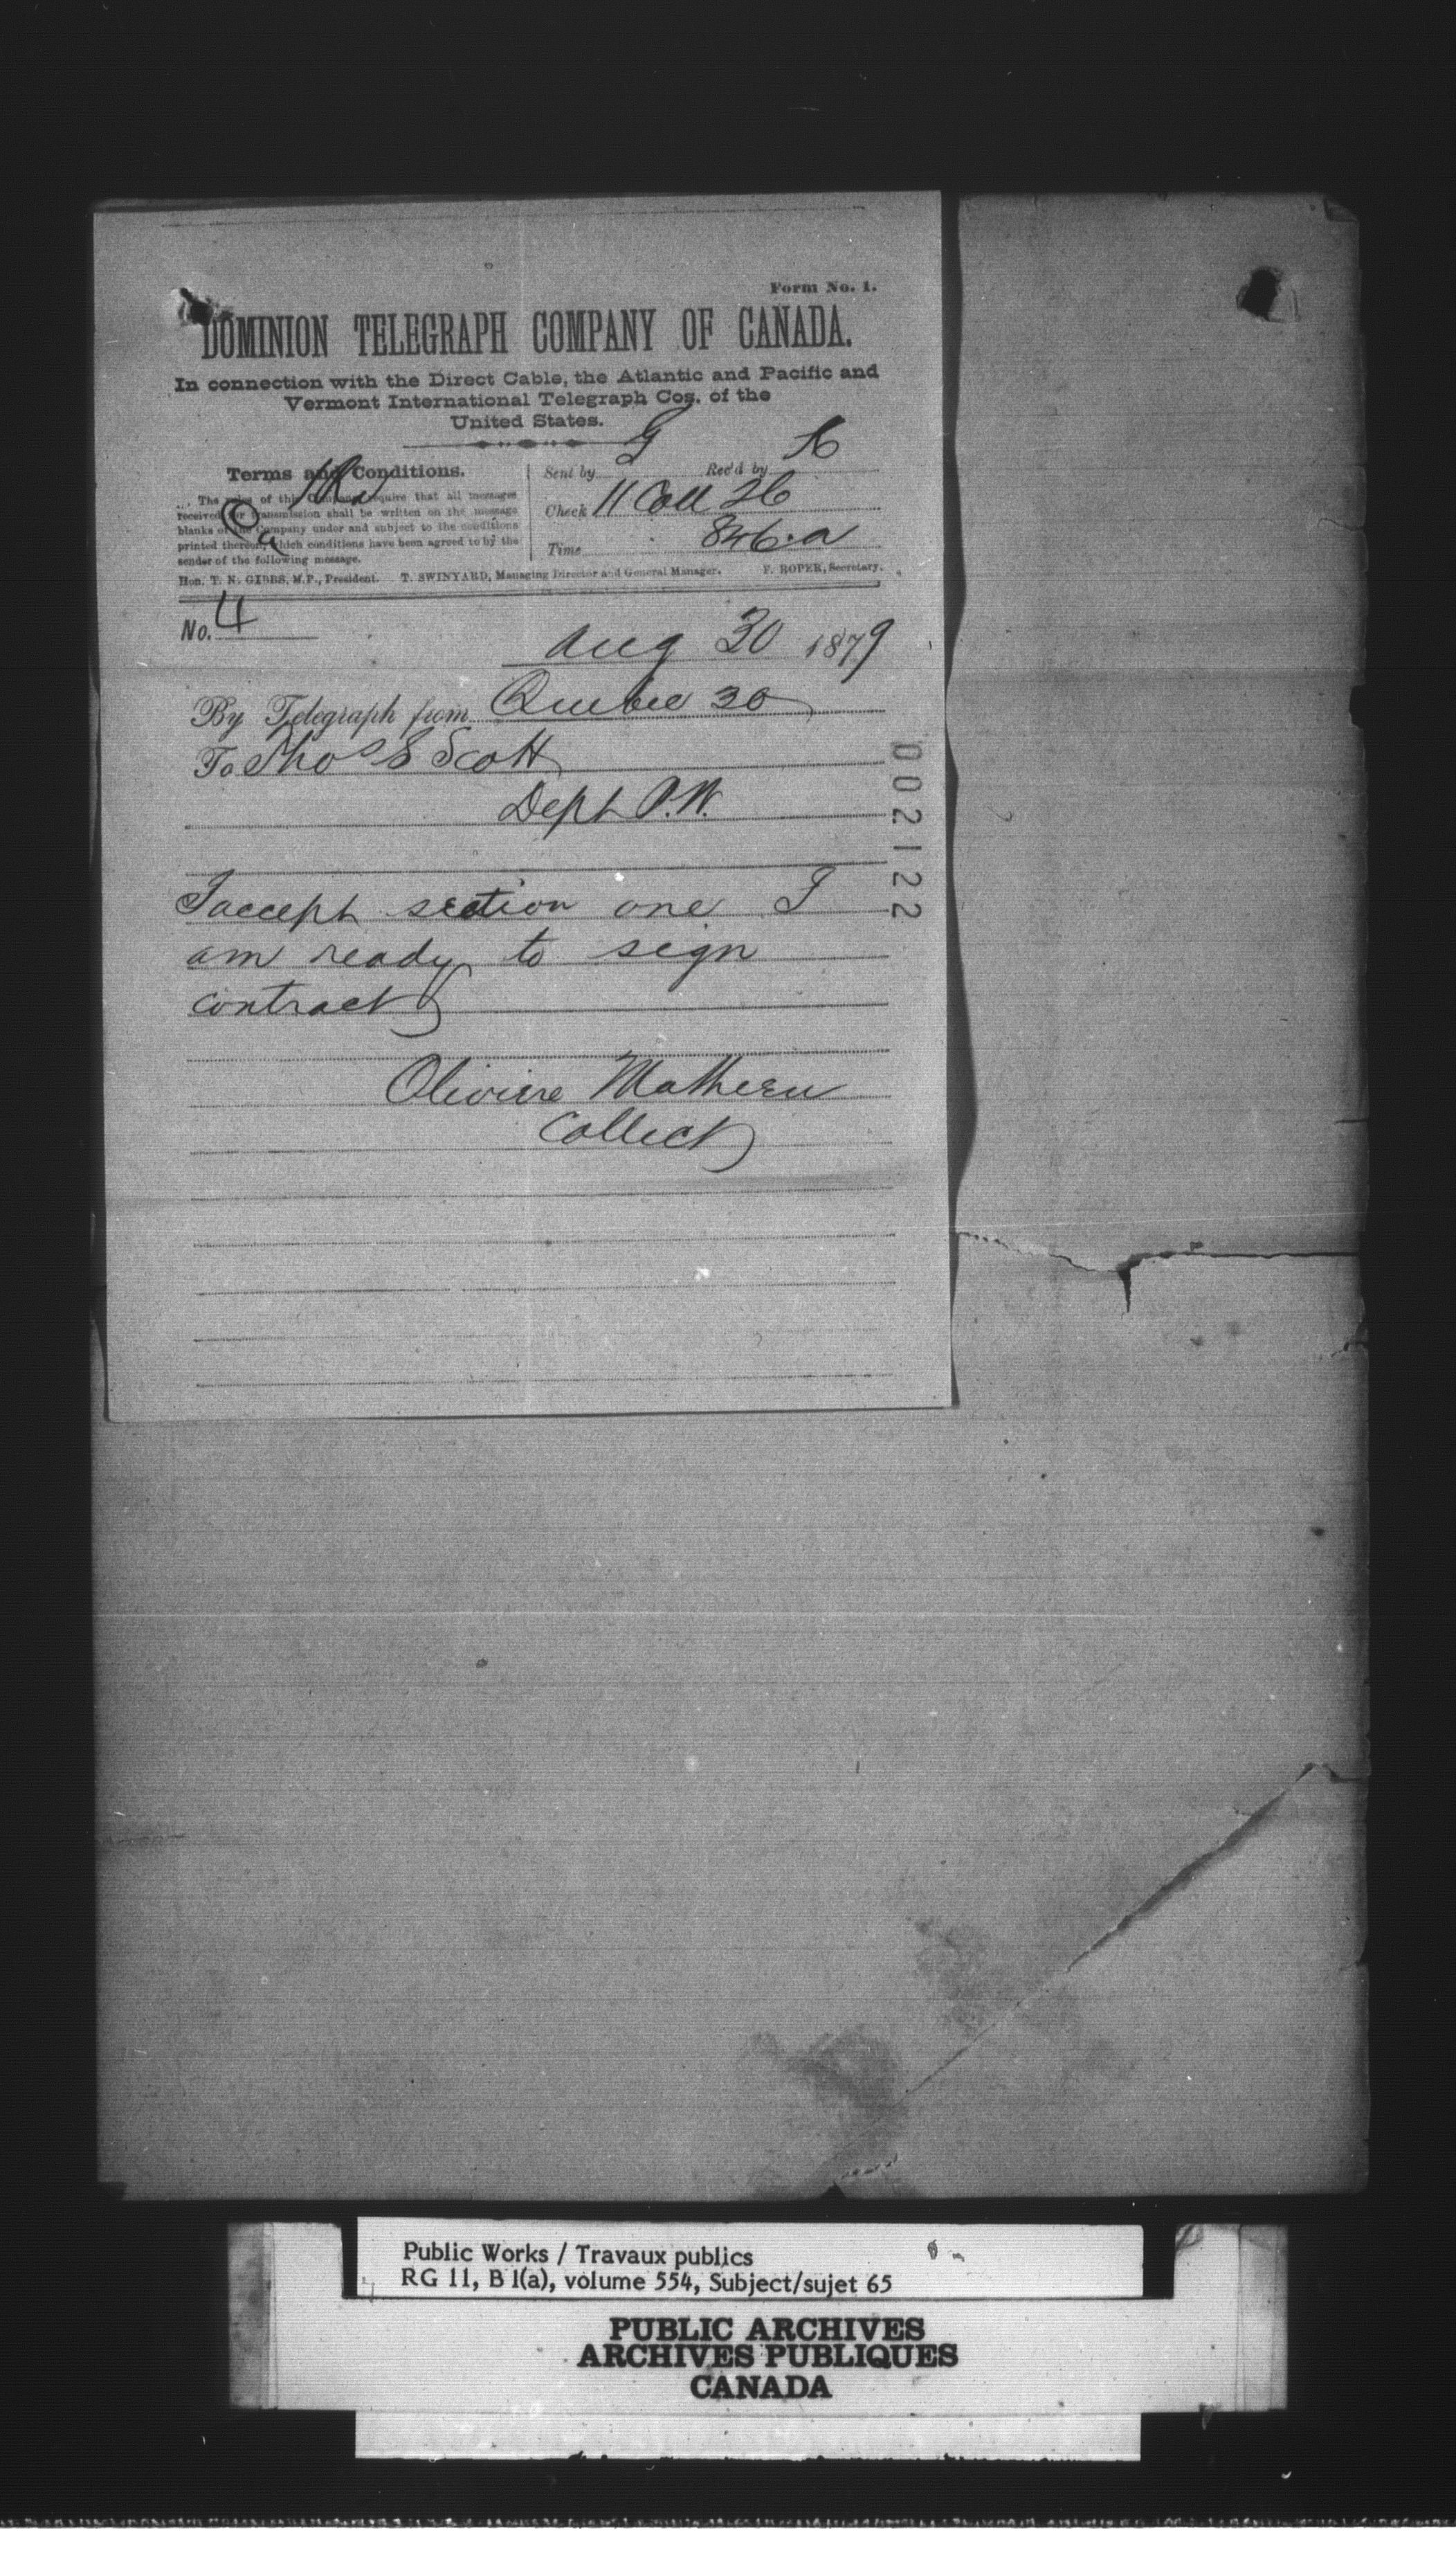 Form No. 1.
DOMINION TELEGRAPH COMPANY OF CANADA.
In connection with the Direct Cable, the Atlantic and Pacific and
Vermont International Telegraph Cos. of the
United States.
Terms and Conditions.
The rules of this Company require that all messages
received for transmission shall be written on the message
blanks of the Company under and subject to the conditions
printed thereon, which conditions have been agreed to by the
sender of the following message.
Sent by G Rec'd by
Check 11 Coll 26
Time 846.a
Hon. T. N. GIBBS, M.P., President. T. SWINYARD, Managing Director and General Manager. F. ROPER, Secretary.
No. 4
Aug 30 1879
By Telegraph from Quebec 30
To Thos S Scott
Dept P.W.
I accept section one I
am ready to sign
contract
Oliviere Mathieu
Collect
002122
Public Works / Travaux publics
RG 11, B 1(a), volume 554, Subject/sujet 65
PUBLIC ARCHIVES
ARCHIVES PUBLIQUES
CANADA